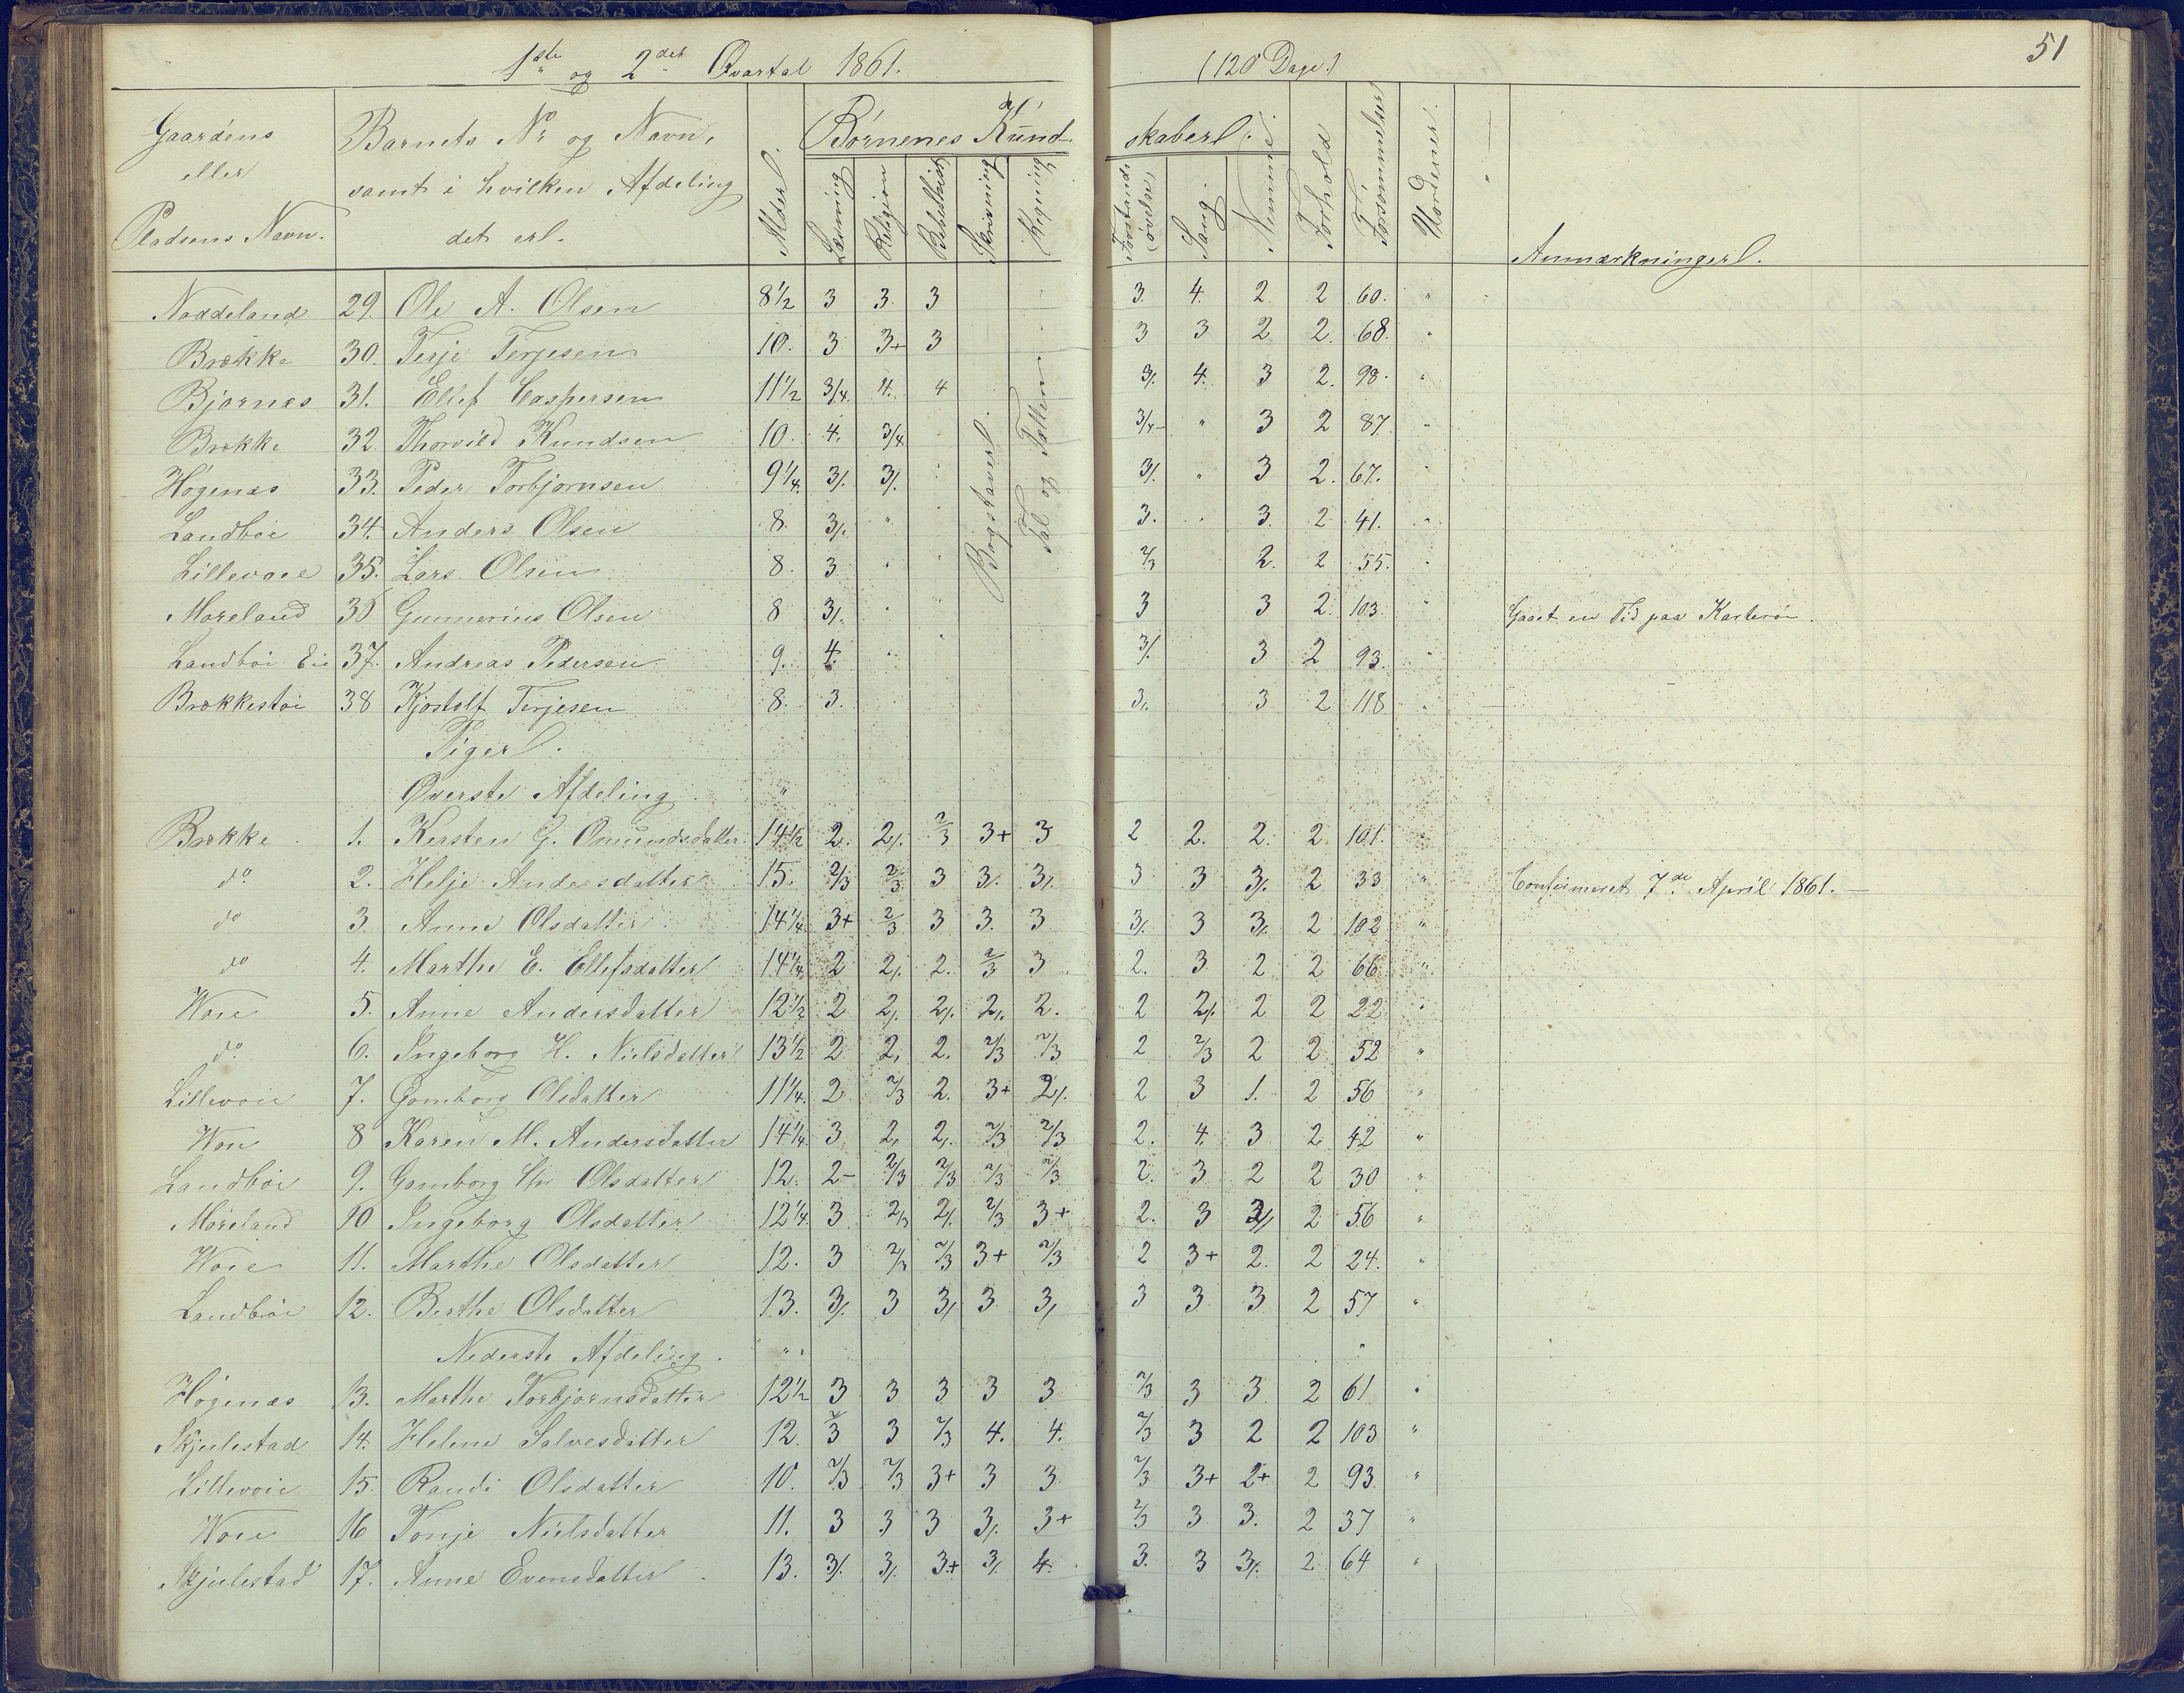 1ste og 2det Qvartal 1861. (120 Dage.) 51
Gaardens eller Pladsens Navn. Barnets No og Navn, samt i hvilken Afdeling det er. Alder. Børnenes Kundskaber i: Læsning Religion Bibelhist. Skrivning Regning Forstands øvelse Sang Nemme Forhold Forsømmelser Uordener. Anmærkninger.
Bogstaver. Tal og Tallene
Naddeland 29. Ole A. Olsen 8 1/2 3 3. 3 3. 4. 2. 2 60. "
Brække 30. Terje Terjesen 10. 3 3+ 3 3 3 2 2. 68. "
Bjørnæs 31. Ellef Caspersen 11 1/2 3/4. 4. 4 3/. 4. 3 2. 98. "
Brække 32. Thorvild Knudsen 10. 4. 3/4 3/4- " 3 2 87. "
Høgenæs 33. Peder Torbjørnsen 9 1/4. 3/. 3/. 3/. " 3 2. 67. "
Landbøe 34. Anders Olsen 8. 3/. " 3. 3. 2 41. "
Lillevoie 35. Lars Olsen 8. 3 " 2/3 2. 2 55. "
Møreland 36 Gunnerius Olsen 8 3/. " 3 3 2. 103. " Gaaet en Tid paa Karterøn.
Landbøe Eie 37. Andreas Pedersen 9. 4. " 3/. 3 2 93. "
Brækkestøi 38 Kjøstolf Terjesen 8. 3. 3/. 3 2 118 "
Piger.
Øverste Afdeling. "
Brække. 1. Kersten G. Omundsdatter. 14 1/2 2. 2/. 2/3 3+ 3 2 2. 2. 2. 101. "
do. 2. Helje Andersdatter 15. 2/3 2/3 3 3/. 3/. 3 3 3/. 2 33 " Confirmeret 7de April 1861. —
do 3. Anne Olsdatter. 14 1/4. 3+ 2/3 3 3. 3 3/. 3 3/. 2 102 "
do 4. Marthe E. Ellefsdatter 14 1/4 2 2/. 2. 2/3 3. 2. 3 2 2 66 "
Woie 5. Anne Andersdatter 12 1/2 2 2/. 2/. 2/. 2. 2 2/. 2 2 22 "
do. 6. Ingeborg H. Nielsdatter 13 1/2 2 2/ 2. 2/3 2/3 2 2/3 2 2 52 "
Lillevoie 7. Gomborg Olsdatter 11 1/4. 2 2/3 2. 3+ 2/. 2 3 1. 2 56 "
Woie 8 Karen M. Andersdatter 14 1/4 3 2/ 2/. 2/3 2/3 2. 4. 3 2 42 "
Landbøe 9. Gomborg Olsdatter 12. 2- 2/3 2/3 2/3 2/3 2. 3 2 2 30 "
Møreland 10 Ingeborg Olsdatter 12 1/4. 3 2/3 2/. 2/3 3+ 2. 3 2 56 "
Woie 11. Marthe Olsdatter 12. 3 2/3 2/3 3+ 2/3 2 3+ 2. 2 24. "
Landbøe 12. Berthe Olsdatter 13. 3/. 3 3/ 3 3/ 3 3 3 2 57 "
Nederste Afdeling. "
Høgenæs 13. Marthe Torbjørnsdatter 12 1/2 3 3 3 3 3 2/3 3 3 2 61 "
Skjulestad 14. Helene Salvesdatter 12. 2/3 3 2/3 4. 4. 2/3 3 2 2 103 "
Lillevoie 15. Randi Olsdatter 10. 2/3 2/3 3+ 3 3 2/3 3+ 2+ 2 93 "
Woie 16 Tonje Nielsdatter 11. 3 3 3 3/. 3+ 2/3 3 3. 2 37 "
Skjulestad 17. Anne Evensdatter 13. 3/. 3/. 3+ 3/. 4. 3. 3 3/. 2 64 "